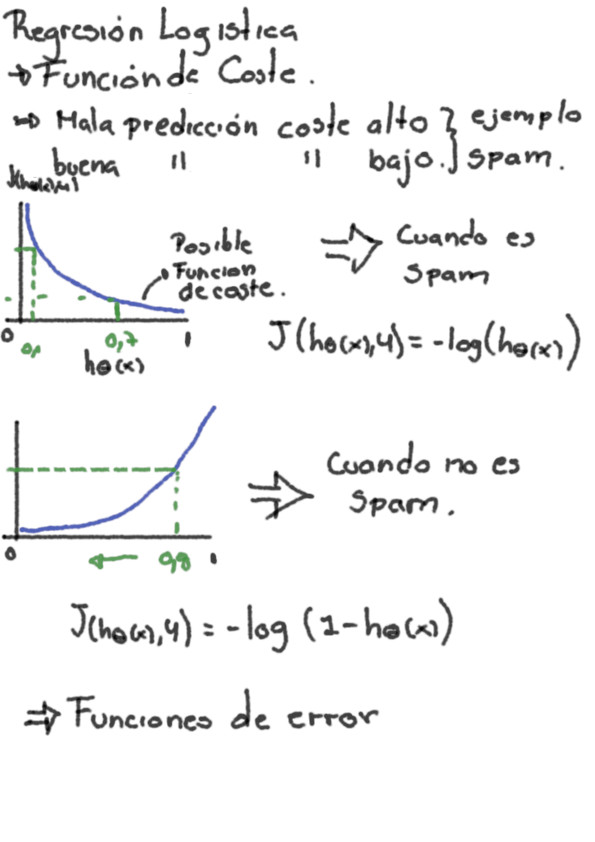 Regresión Logistica
→ Función de Coste.
⇒ Mala predicción coste alto } ejemplo
buena " " bajo. } spam.
J(hθ(x),y)
Posible
Funcion
de coste.
⇒ Cuando es
spam
0 0,1 0,7 1
hθ(x)
J(hθ(x),y) = -log(hθ(x))
⇒ Cuando no es
spam.
0 ← 0,8 1
J(hθ(x),y) = -log (1-hθ(x))
⇒ Funciones de error